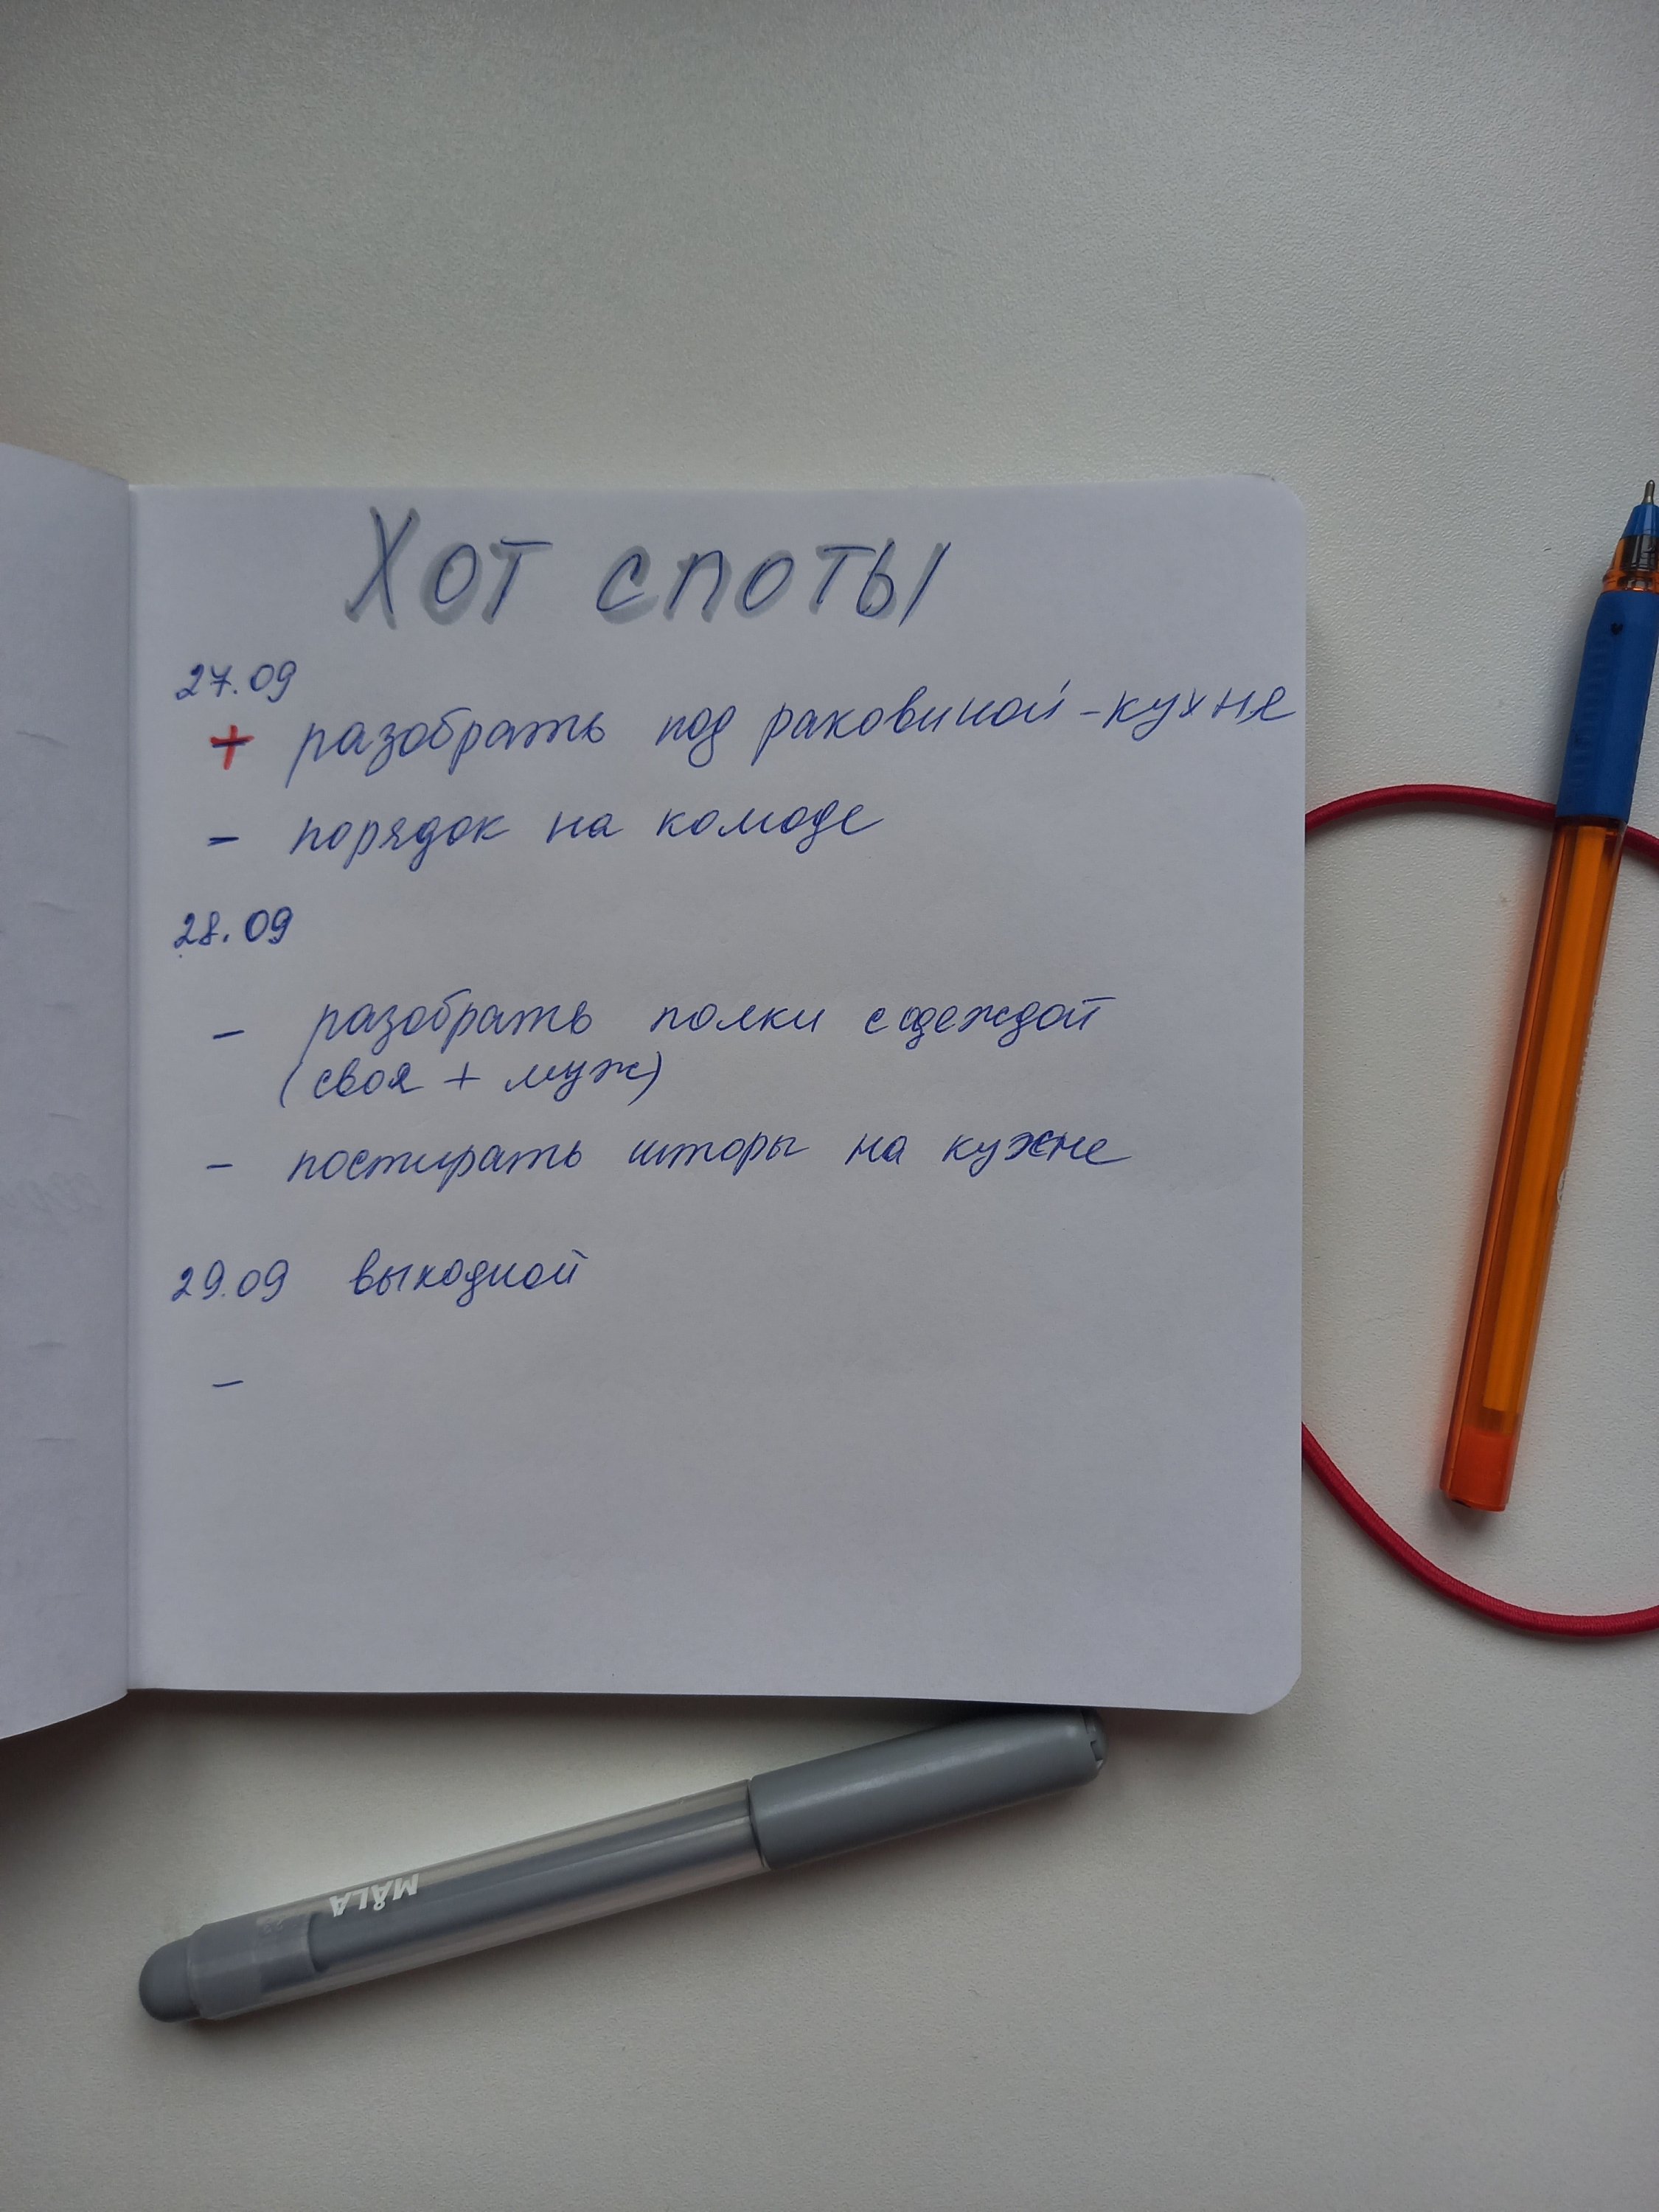 Хот споты
27.09
+ разобрать под раковиной - кухне
- порядок на комоде
28.09
- разобрать полки с одеждой
(своя + муж)
- постирать шторы на кухне
29.09 выходной
-
MÅLA